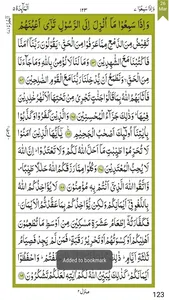 المآئدة ٥
١٢٣
واذا سمعوا ٧
وَاِذَا سَمِعُوْا مَاۤ اُنْزِلَ اِلَى الرَّسُوْلِ تَرٰۤى اَعْيُنَهُمْ
تَفِيْضُ مِنَ الدَّمْعِ مِمَّا عَرَفُوْا مِنَ الْحَقِّ يَقُوْلُوْنَ رَبَّنَاۤ اٰمَنَّا
فَاكْتُبْنَا مَعَ الشّٰهِدِيْنَ وَمَا لَنَا لَا نُؤْمِنُ بِاللّٰهِ وَمَا جَآءَنَا
مِنَ الْحَقِّ وَنَطْمَعُ اَنْ يُّدْخِلَنَا رَبُّنَا مَعَ الْقَوْمِ الصّٰلِحِيْنَ
فَاَثَابَهُمُ اللّٰهُ بِمَا قَالُوْا جَنّٰتٍ تَجْرِيْ مِنْ تَحْتِهَا الْاَنْهٰرُ خٰلِدِيْنَ
فِيْهَا وَذٰلِكَ جَزَآءُ الْمُحْسِنِيْنَ وَالَّذِيْنَ كَفَرُوْا وَكَذَّبُوْا
بِاٰيٰتِنَاۤ اُولٰٓئِكَ اَصْحٰبُ الْجَحِيْمِ يٰۤاَيُّهَا الَّذِيْنَ اٰمَنُوْا
لَا تُحَرِّمُوْا طَيِّبٰتِ مَاۤ اَحَلَّ اللّٰهُ لَكُمْ وَلَا تَعْتَدُوْا اِنَّ اللّٰهَ
لَا يُحِبُّ الْمُعْتَدِيْنَ وَكُلُوْا مِمَّا رَزَقَكُمُ اللّٰهُ حَلٰلًا طَيِّبًا
وَّاتَّقُوا اللّٰهَ الَّذِيْۤ اَنْتُمْ بِهٖ مُؤْمِنُوْنَ لَا يُؤَاخِذُكُمُ اللّٰهُ
بِاللَّغْوِ فِيْۤ اَيْمَانِكُمْ وَلٰكِنْ يُّؤَاخِذُكُمْ بِمَا عَقَّدْتُّمُ الْاَيْمَانَ
فَكَفَّارَتُهٗۤ اِطْعَامُ عَشَرَةِ مَسٰكِيْنَ مِنْ اَوْسَطِ مَا تُطْعِمُوْنَ
اَهْلِيْكُمْ اَوْ كِسْوَتُهُمْ اَوْ تَحْرِيْرُ رَقَبَةٍ فَمَنْ لَّمْ يَجِدْ فَصِيَامُ
ثَلٰثَةِ اَيَّامٍ ذٰلِكَ كَفَّارَةُ اَيْمَانِكُمْ اِذَا حَلَفْتُمْ وَاحْفَظُوْۤا
اَيْمَانَكُمْ كَذٰلِكَ يُبَيِّنُ اللّٰهُ لَكُمْ اٰيٰتِهٖ لَعَلَّكُمْ تَشْكُرُوْنَ
Added to bookmark
منزل ٢
123